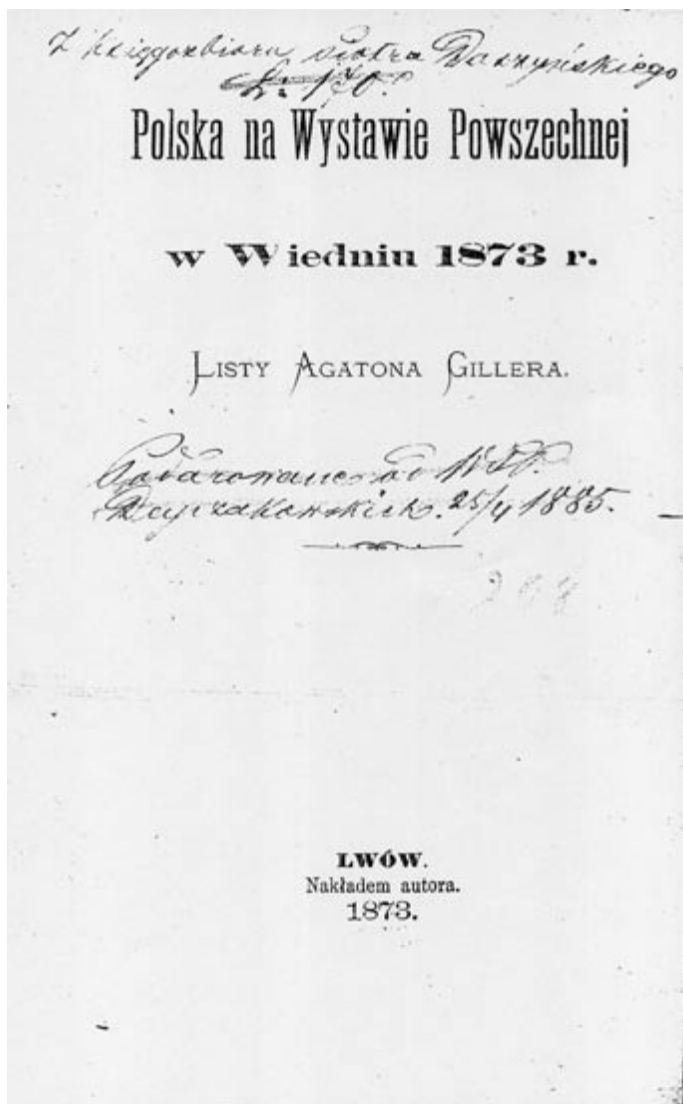 Z księgozbioru Piotra Daszyńskiego
Polska na Wystawie Powszechnej
w Wiedniu 1873 r.
Listy Agatona Gillera.
Podarowane od
25/4 1885.
LWÓW.
Nakładem autora.
1873.